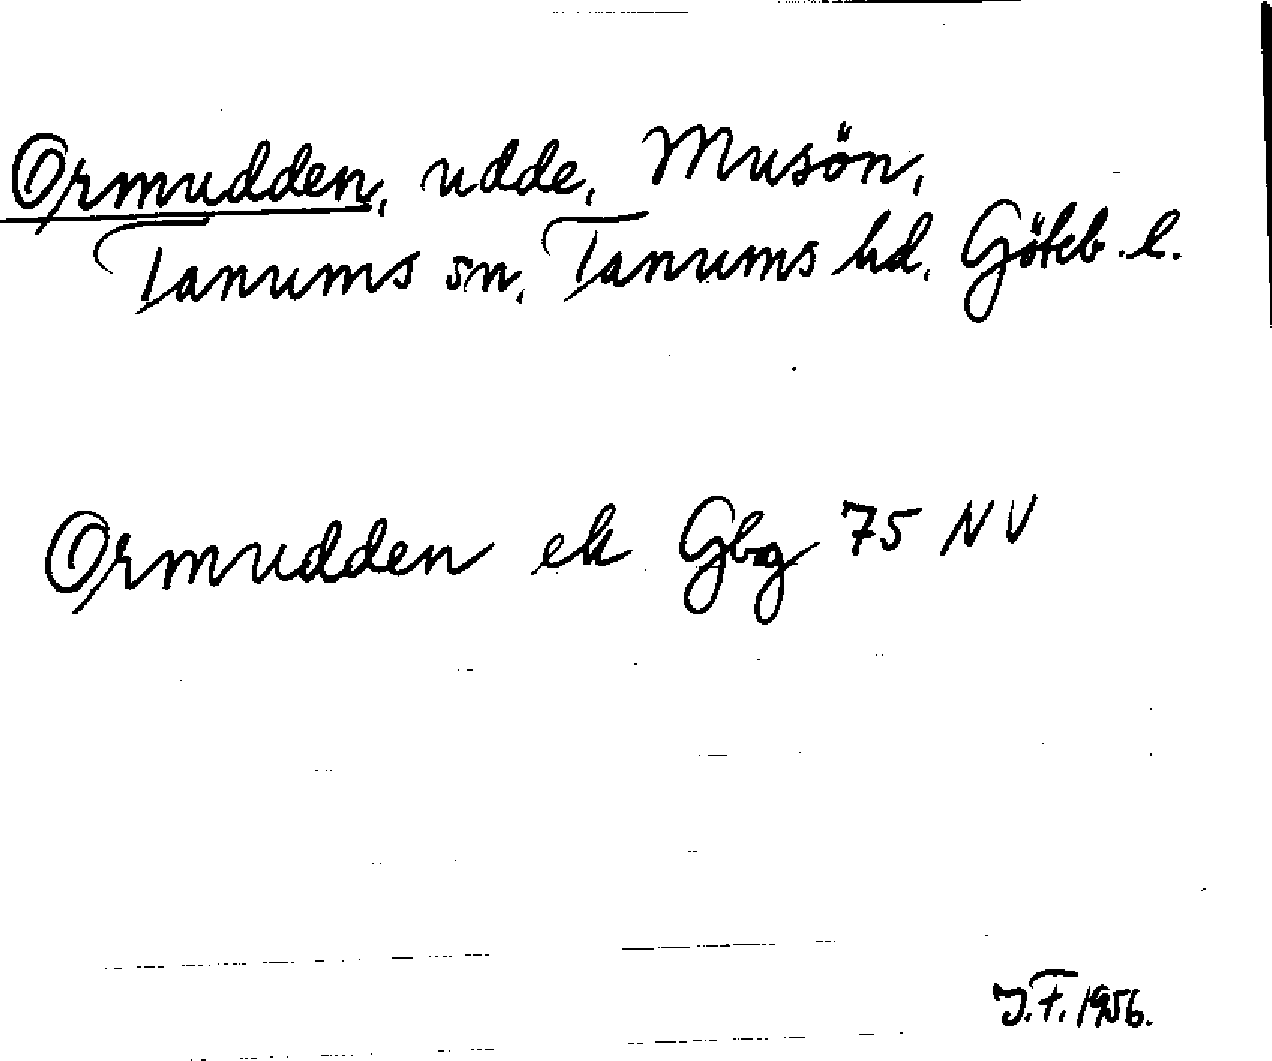 Ormudden, udde, Musön,
Tanums sn, Tanums hd. Göteb. l.
Ormudden ek Gbg 75 NV
J.F. 1956.